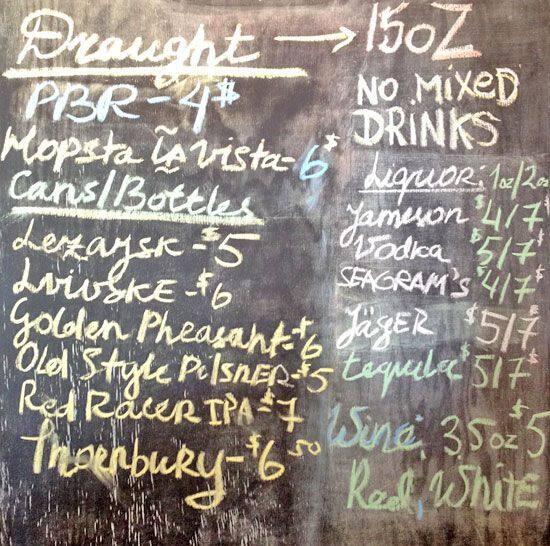 Draught → 15oZ
PBR - 4$
Hopsta La Vista - 6$
Cans/Bottles
Lezaysk - $5
Lvivske - $6
Golden Pheasant - $6
Old Style Pilsner - $5
Red Racer IPA - $7
Thornbury - $6.50
NO MIXED
DRINKS
Liquor: 1oz/2oz
Jameson $4/7
Vodka $5/7
SEAGRAM'S $4/7
JägER $5/7
tequila $5/7
Wine, 3,5oz $5
Red, WHITE